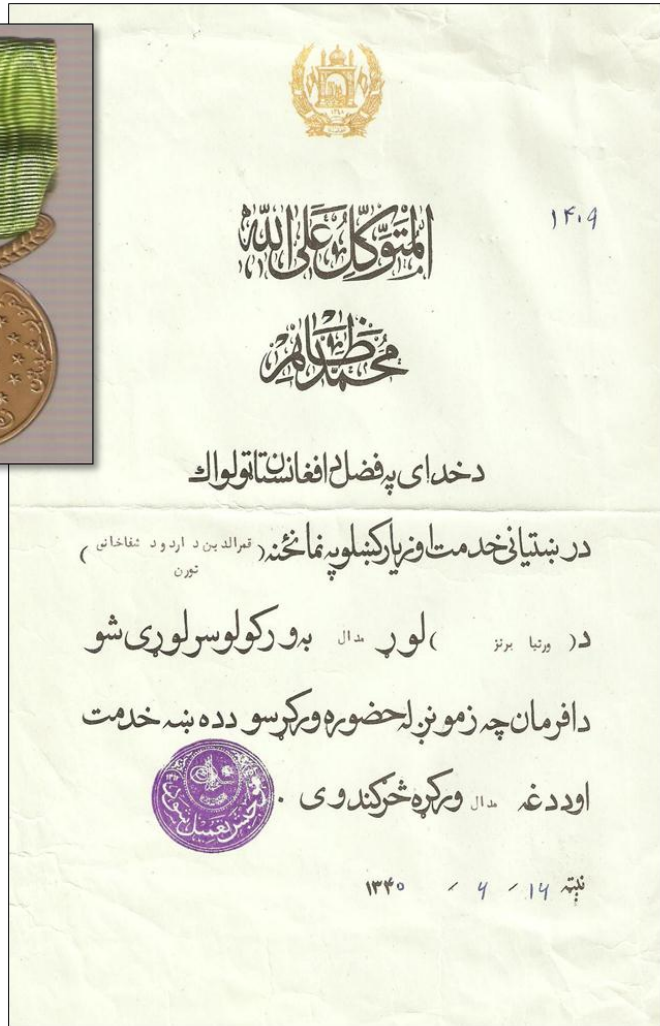 ۱۴۰۹
المتوكل على الله
محمد ظاهر
د خدای په فضل د افغانستان ټولواك
د رښتیانی خدمت او زیار کښلو په نمانځنه (قمرالدین د اردو د شفاخانی تورن)
د (ورتیا برنز) لوړ مدال په ورکولو سرلوړی شو
دا فرمان چه زمونږ له حضوره ورکړ سو د ده ښه خدمت
او د دغه مدال ورکړه څرګندوی .
نېټه ۱۶ / ۶ / ۱۳۴۰